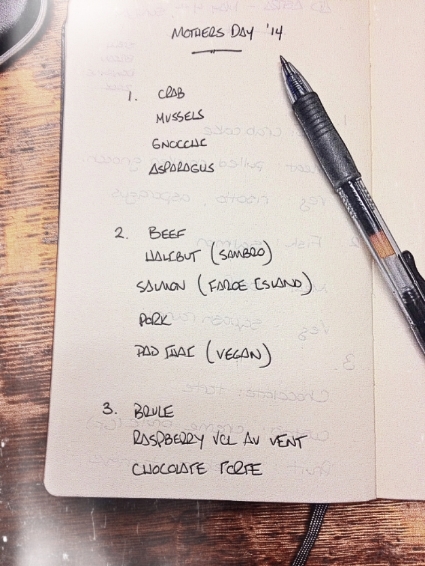 MOTHERS DAY '14
1. CRAB
MUSSELS
GNOCCHI
ASPARAGUS
2. BEEF
HALIBUT (SAMBRO)
SALMON (FAROE ISLAND)
PORK
PAD THAI (VEGAN)
3. BRULE
RASPBERRY VOL AU VENT
CHOCOLATE TORTE